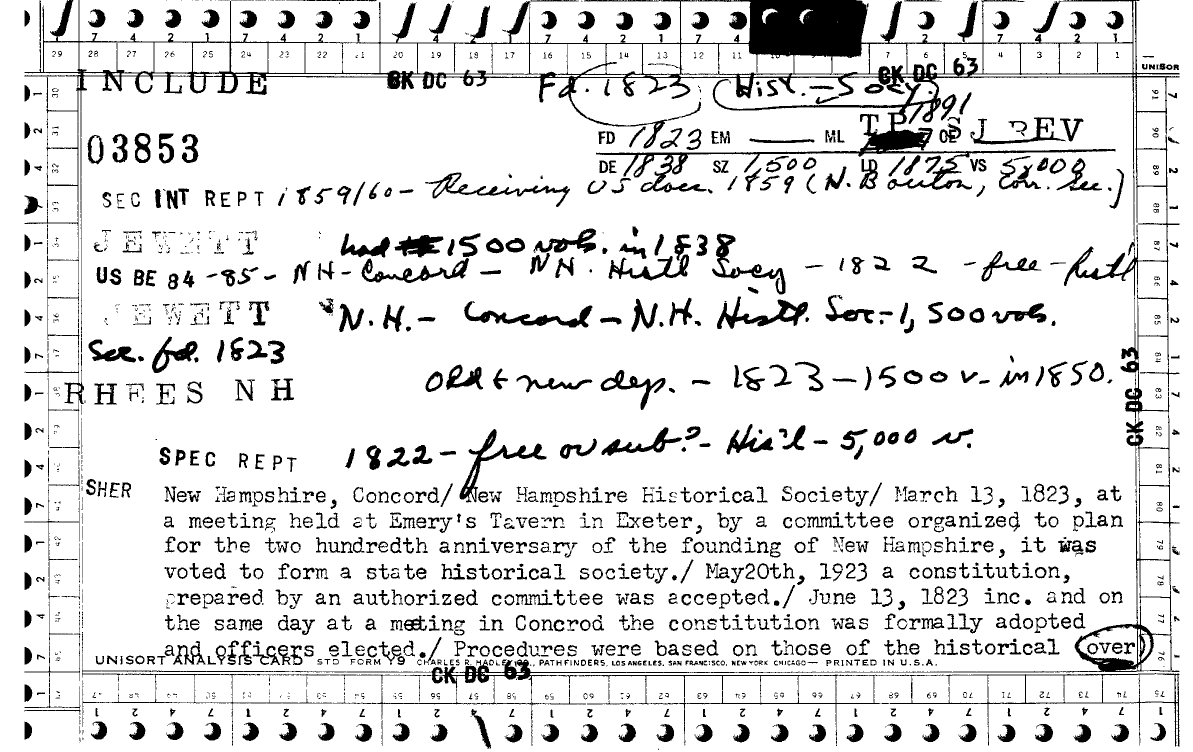 7 4 2 1 7 4 2 1 7 4 2 1 7 4 2 1 7 4 2 1 7 4 2 1
29 28 27 26 25 24 23 22 21 20 19 18 17 16 15 14 13 12 11 7 6 5 4 3 2 1
UNISOR
INCLUDE CK DC 63 Fd. 1823 Hist.-Socy. CK DC 63
1891
03853 FD 1823 EM — ML J REV
DE 1838 SZ 1,500 LD 1875 VS 5,000
SEC INT REPT 1859/60 - Receiving US docs. 1859 (N. Bouton, Corr. Sec.)
JEWETT had 1500 vols. in 1838
US BE 84-85 - NH - Concord - NH. Histl Socy - 1822 - free - Histl
JEWETT N.H. - Concord - N.H. Histl. Soc. - 1,500 vols.
Soc. fd. 1823
RHEES NH Old & new dep. - 1823 - 1500 v. in 1850.
CK DC 63
SPEC REPT 1822 - free or sub? - His'l - 5,000 v.
SHER New Hampshire, Concord/ New Hampshire Historical Society/ March 13, 1823, at
a meeting held at Emery's Tavern in Exeter, by a committee organized to plan
for the two hundredth anniversary of the founding of New Hampshire, it was
voted to form a state historical society./ May20th, 1923 a constitution,
prepared by an authorized committee was accepted./ June 13, 1823 inc. and on
the same day at a meeting in Concrod the constitution was formally adopted
and officers elected./ Procedures were based on those of the historical over
UNISORT ANALYSIS CARD STD FORM Y9 CHARLES R. HADLEY CO., PATHFINDERS, LOS ANGELES, SAN FRANCISCO, NEW YORK CHICAGO — PRINTED IN U.S.A.
CK DC 63